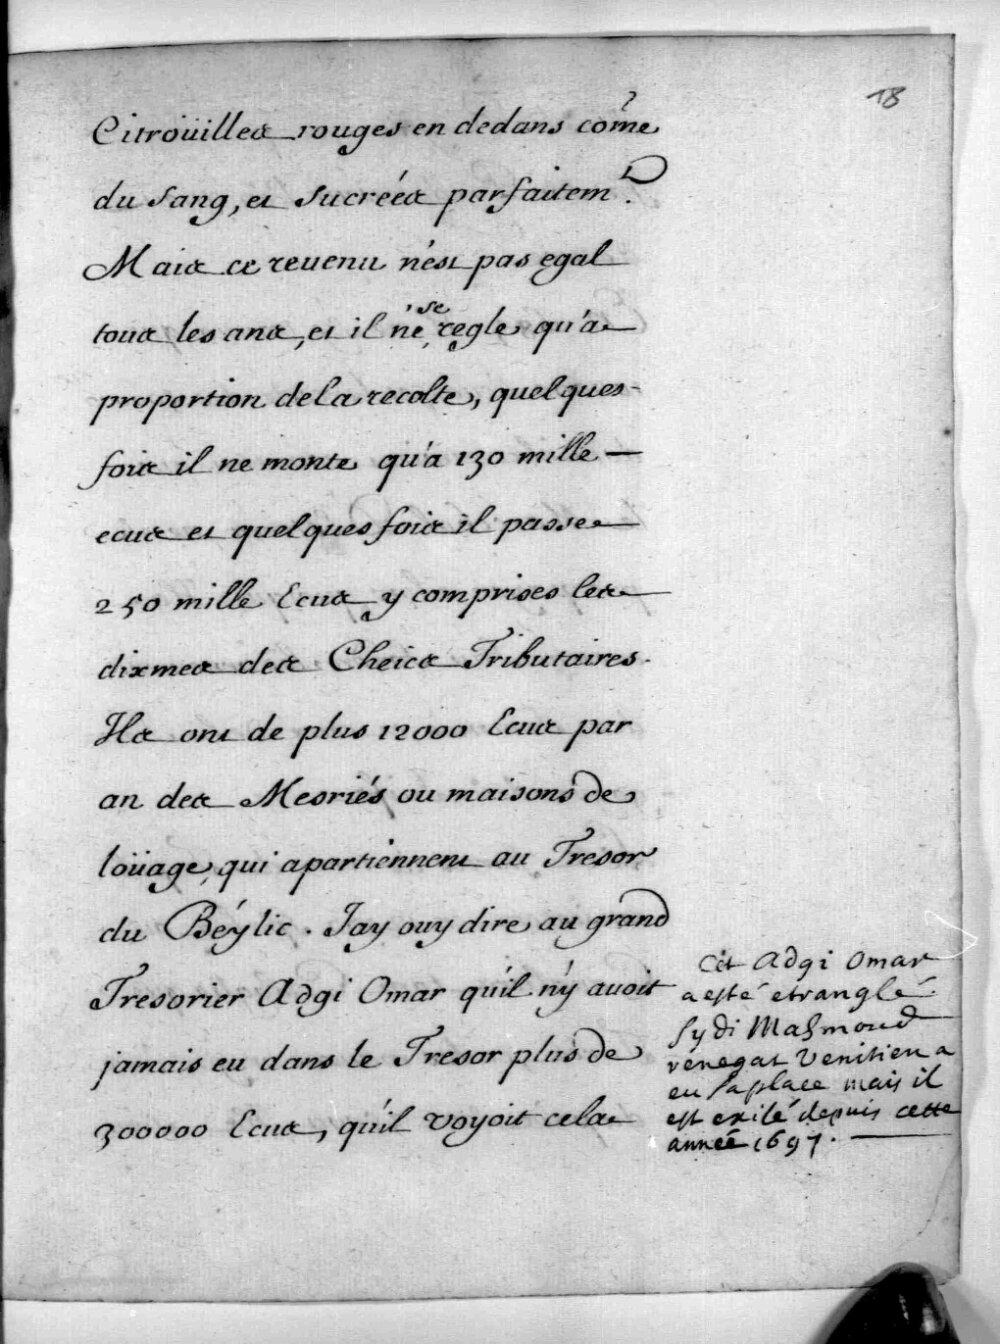 18
Citroüilles rouges en dedans côme
du sang, et sucréés parfaitemt.
Mais ce revenu n'est pas egal
tous les ans, et il ne se regle qu'a
proportion de la recolte, quelques-
fois il ne monte qu'a 130 mille
ecus et quelques fois il passe
250 mille Ecus y comprises les
dixmes des Cheics Tributaires.
Ils ont de plus 12000 Ecus par
an des Mesriés ou maisons de
loüage, qui apartiennent au Tresor
du Béylic. Jay ouy dire au grand
Tresorier Adgi Omar qu'il n'y avoit
jamais eu dans le Tresor plus de
300000 Ecus, qu'il voyoit cela
Cet Adgi Omar
a esté etranglé
Sydi Mahmoud
renegat Venitien a
eu sa place mais il
est exilé depuis cette
année 1697.